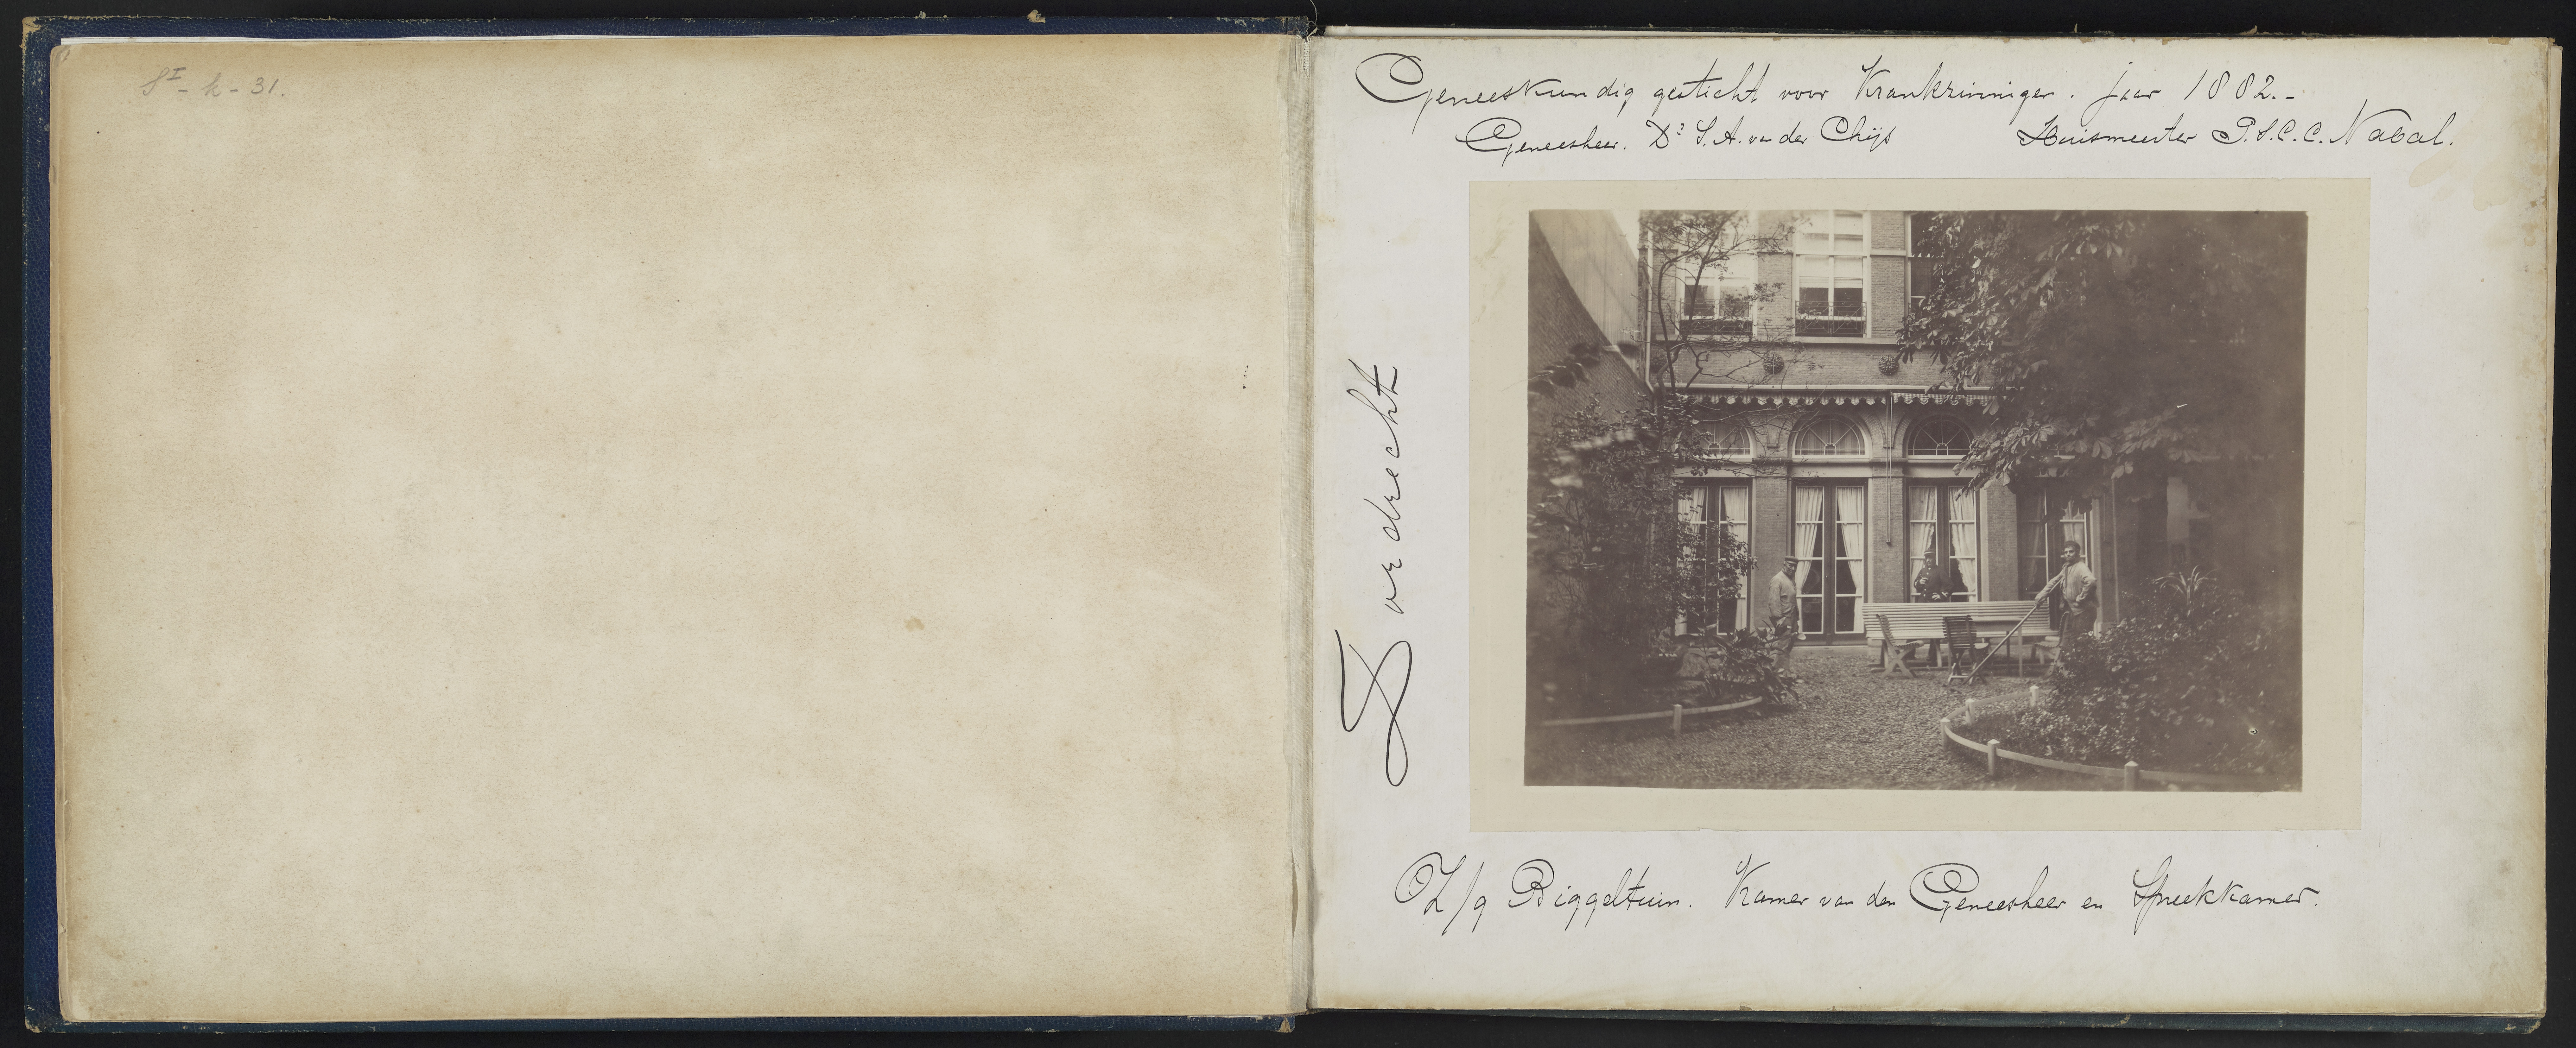 SI - h - 31.
Geneeskundig gesticht voor Krankzinnigen. Jaar 1882.-
Geneesheer. Dr S. A. van der Chijs Huismeester P.S.C.C. Nabal.
Dordrecht
Z/g Biggeltuin. Kamer van den Geneesheer en Spreekkamer.